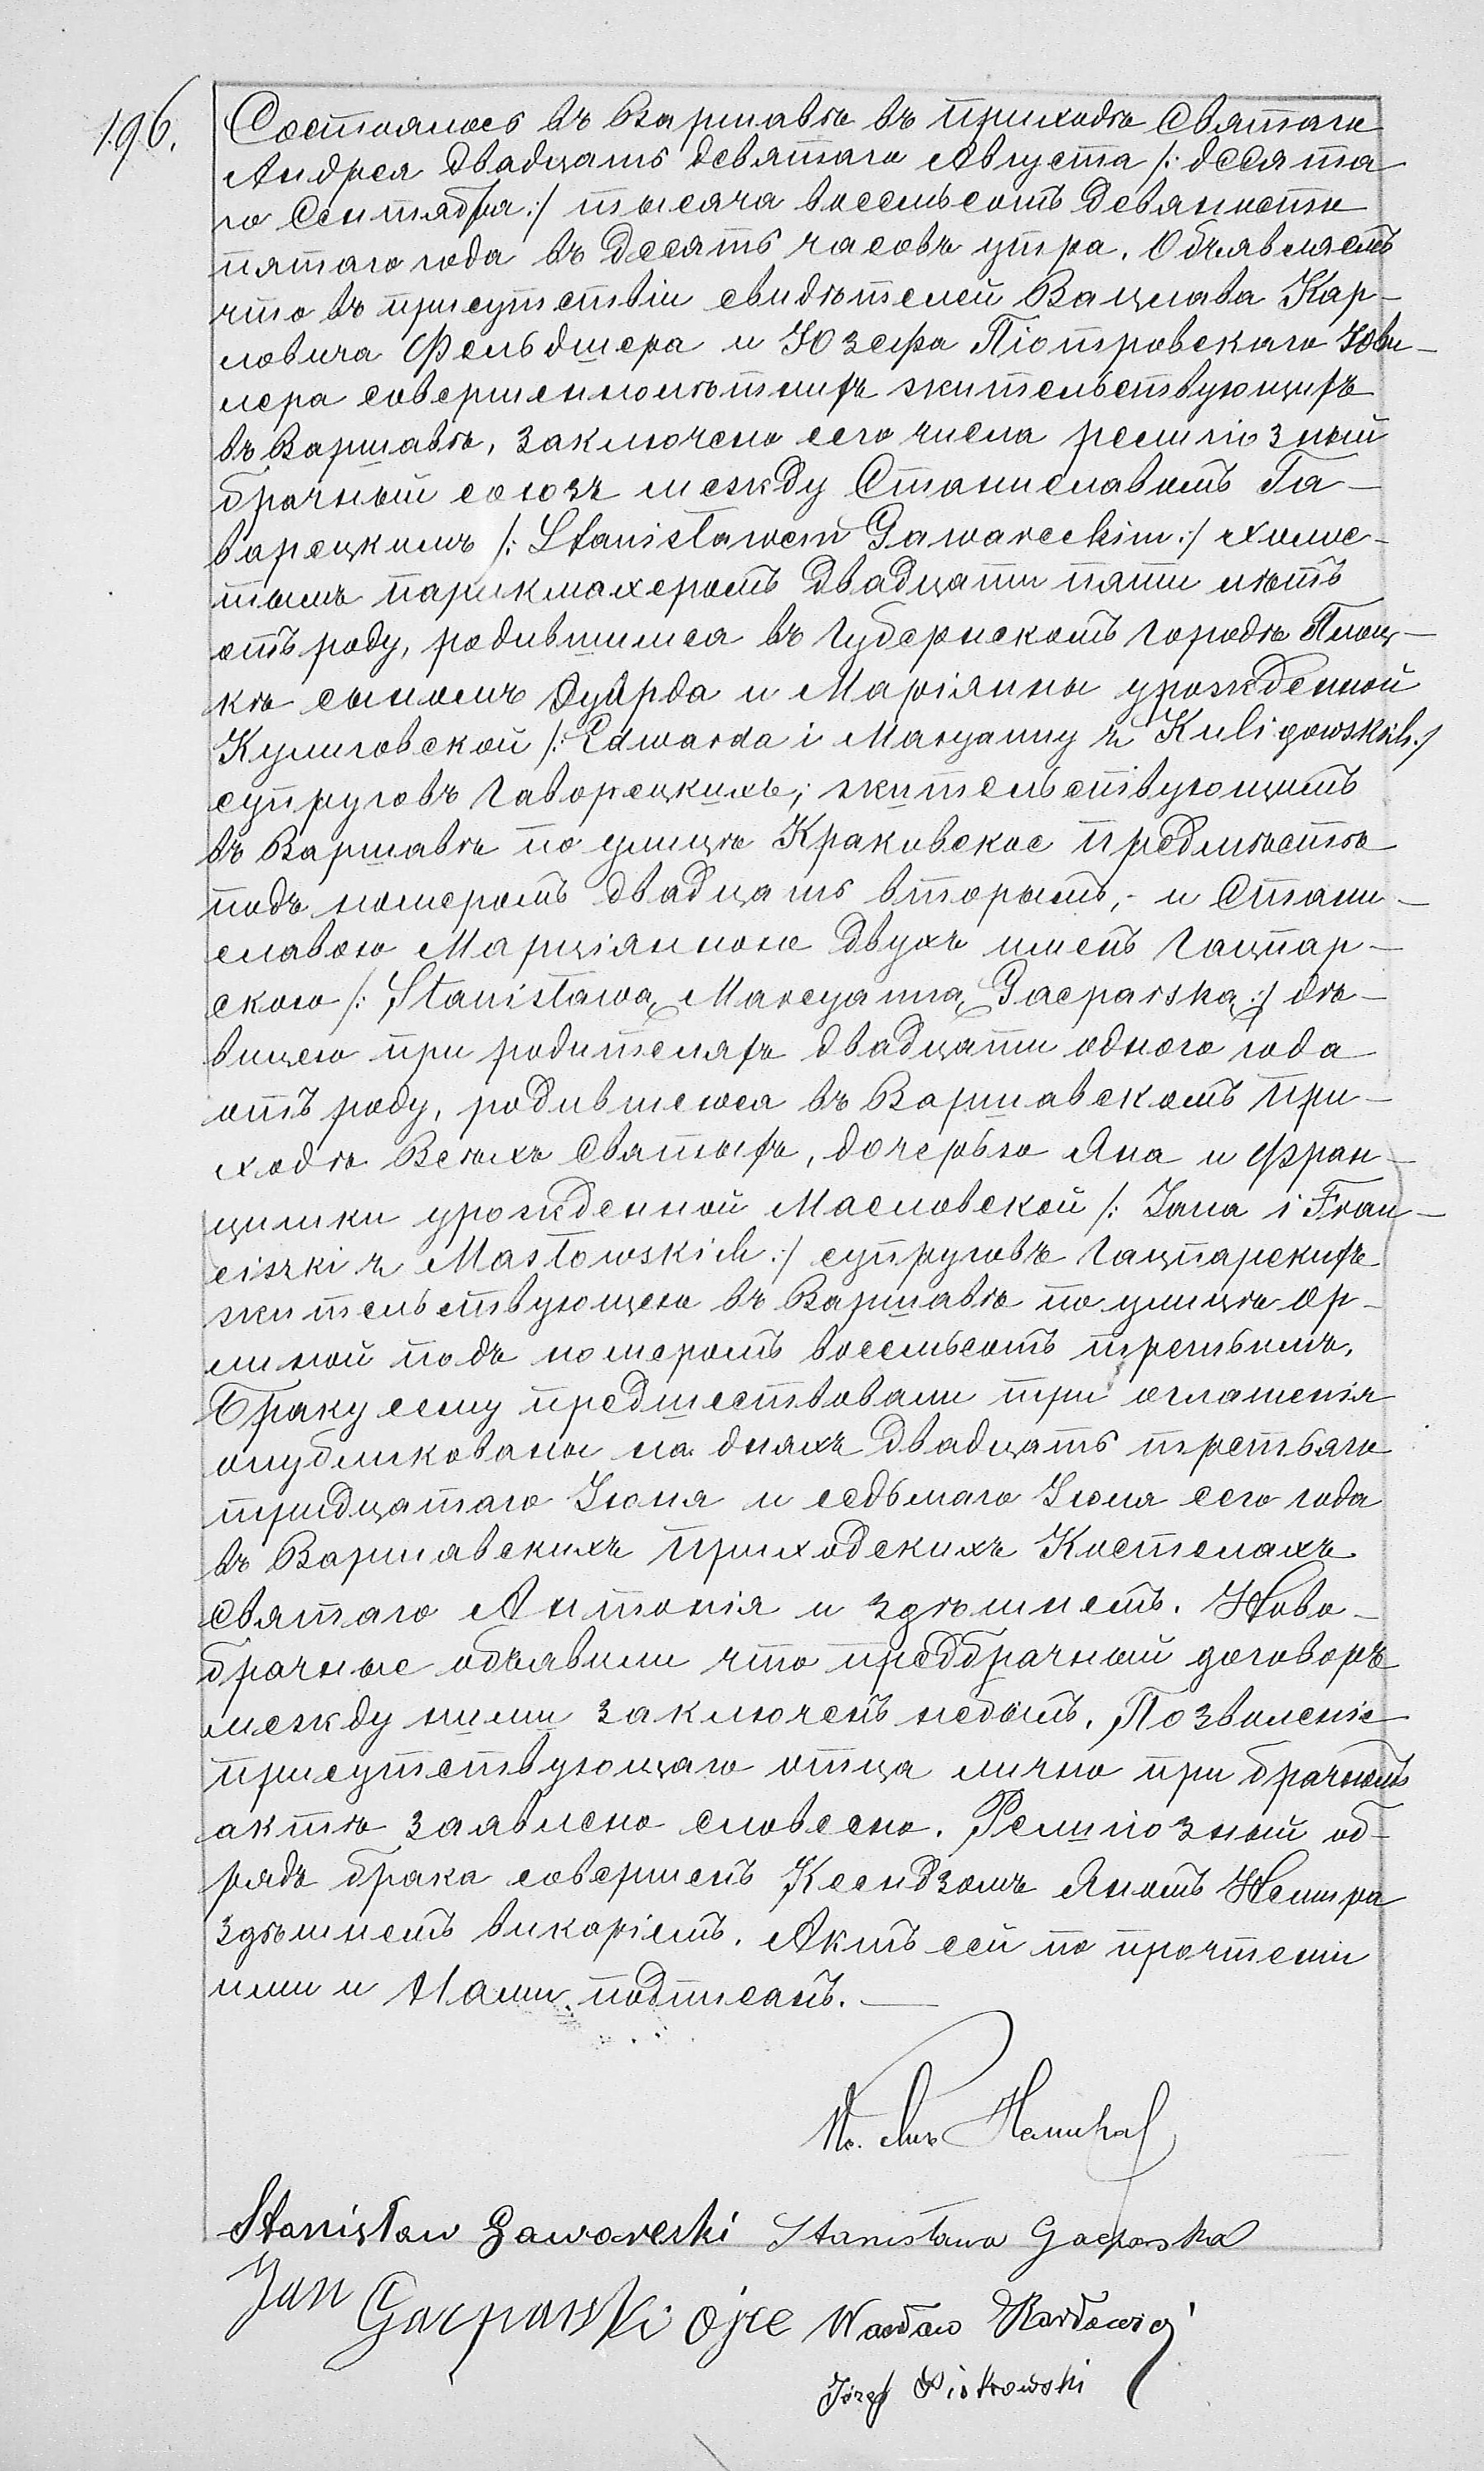 196.
Состоялось въ Варшавѣ въ приходѣ Святаго
Андрея двадцать девятаго Августа /: десята
го Сентября :/ тысяча восемьсотъ девяносто
пятаго года въ десять часовъ утра. Объявляемъ
что въ присутствіи свидѣтелей Вацлава Кар-
ловича Фельдшера и Юзефа Піотровскаго Юви-
лера совершеннолѣтнихъ жительствующихъ
въ Варшавѣ, заключено сего числа религіозный
брачный союзъ между Станиславомъ Га-
варецкимъ /: Stanisławem Gawareckim :/ холос-
тымъ парикмахеромъ двадцати пяти лѣтъ
отъ роду, родившимся въ Губернскомъ городѣ Плоц-
кѣ сыномъ Эдуарда и Маріянны урожденной
Кулиговской /: Edwarda i Maryanny z Kuligowskich :/
супруговъ Гаворецкихъ; жительствующимъ
въ Варшавѣ по улицѣ Краковское предмѣстье
подъ номеромъ двадцать вторымъ, - и Стани-
славою Марціянною двухъ именъ Гацпар-
скою /: Stanisławą Marcyanną Gacparską :/ дѣ-
вицею при родителяхъ двадцати одного года
отъ роду, родившеюся въ Варшавскомъ при-
ходѣ Всѣхъ Святыхъ, дочерью Яна и Фран-
цишки урожденной Масловской /: Jana i Fran-
ciszki z Masłowskich :/ супруговъ Гацпарскихъ
жительствующею въ Варшавѣ по улицѣ Ор-
линой подъ номеромъ восемьсотъ третьимъ.
Браку сему предшествовали три оглашенія
опубликованы на дняхъ двадцать третьяго
тридцатаго Іюня и седьмаго Іюля сего года
въ Варшавскихъ приходскихъ Костелахъ
Святаго Антонія и здѣшнемъ. Ново-
брачные объявили что предбрачный договоръ
между ними заключенъ небылъ. Позволеніе
присутствующаго отца лично при брачномъ
актѣ заявлено словесно. Религіозный об-
рядъ брака совершенъ Ксендзомъ Яномъ Немира
здѣшнемъ викаріемъ. Актъ сей по прочтеніи
ими и Нами подписанъ. —
Кс. Янъ Немира
Stanisław Gawarecki Stanisława Gacparska
Jan Gacparski ojce Wacław Karłowicz
Józef Piotrowski